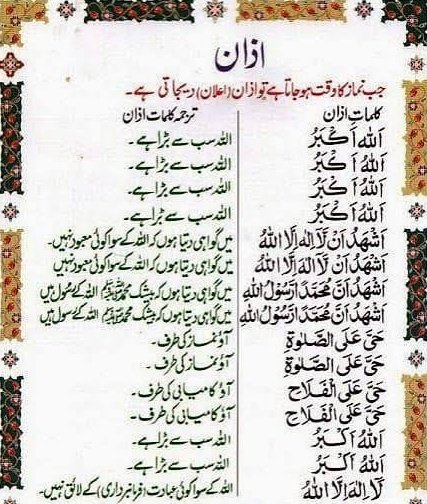 اذان
جب نماز کا وقت ہو جاتا ہے تو اذان (اعلان) دیجاتی ہے۔
کلمات اذان ترجمہ کلمات اذان
اَللهُ اَكْبَرُ اللہ سب سے بڑا ہے۔
اَللهُ اَكْبَرُ اللہ سب سے بڑا ہے۔
اَللهُ اَكْبَرُ اللہ سب سے بڑا ہے۔
اَللهُ اَكْبَرُ اللہ سب سے بڑا ہے۔
اَشْهَدُ اَنْ لَّا اِلٰهَ اِلَّا اللهُ میں گواہی دیتا ہوں کہ اللہ کے سوا کوئی معبود نہیں۔
اَشْهَدُ اَنْ لَّا اِلٰهَ اِلَّا اللهُ میں گواہی دیتا ہوں کہ اللہ کے سوا کوئی معبود نہیں
اَشْهَدُ اَنَّ مُحَمَّدًا رَّسُوْلُ اللهِ میں گواہی دیتا ہوں کہ بیشک محمد ﷺ اللہ کے رسول ہیں
اَشْهَدُ اَنَّ مُحَمَّدًا رَّسُوْلُ اللهِ میں گواہی دیتا ہوں کہ بیشک محمد ﷺ اللہ کے رسول ہیں
حَيَّ عَلَى الصَّلٰوةِ آؤ نماز کی طرف۔
حَيَّ عَلَى الصَّلٰوةِ آؤ نماز کی طرف۔
حَيَّ عَلَى الْفَلَاحِ آؤ کامیابی کی طرف۔
حَيَّ عَلَى الْفَلَاحِ آؤ کامیابی کی طرف۔
اَللهُ اَكْبَرُ اللہ سب سے بڑا ہے۔
اَللهُ اَكْبَرُ اللہ سب سے بڑا ہے۔
لَا اِلٰهَ اِلَّا اللهُ اللہ کے سوا کوئی عبادت (فرمانبرداری) کے لائق نہیں۔